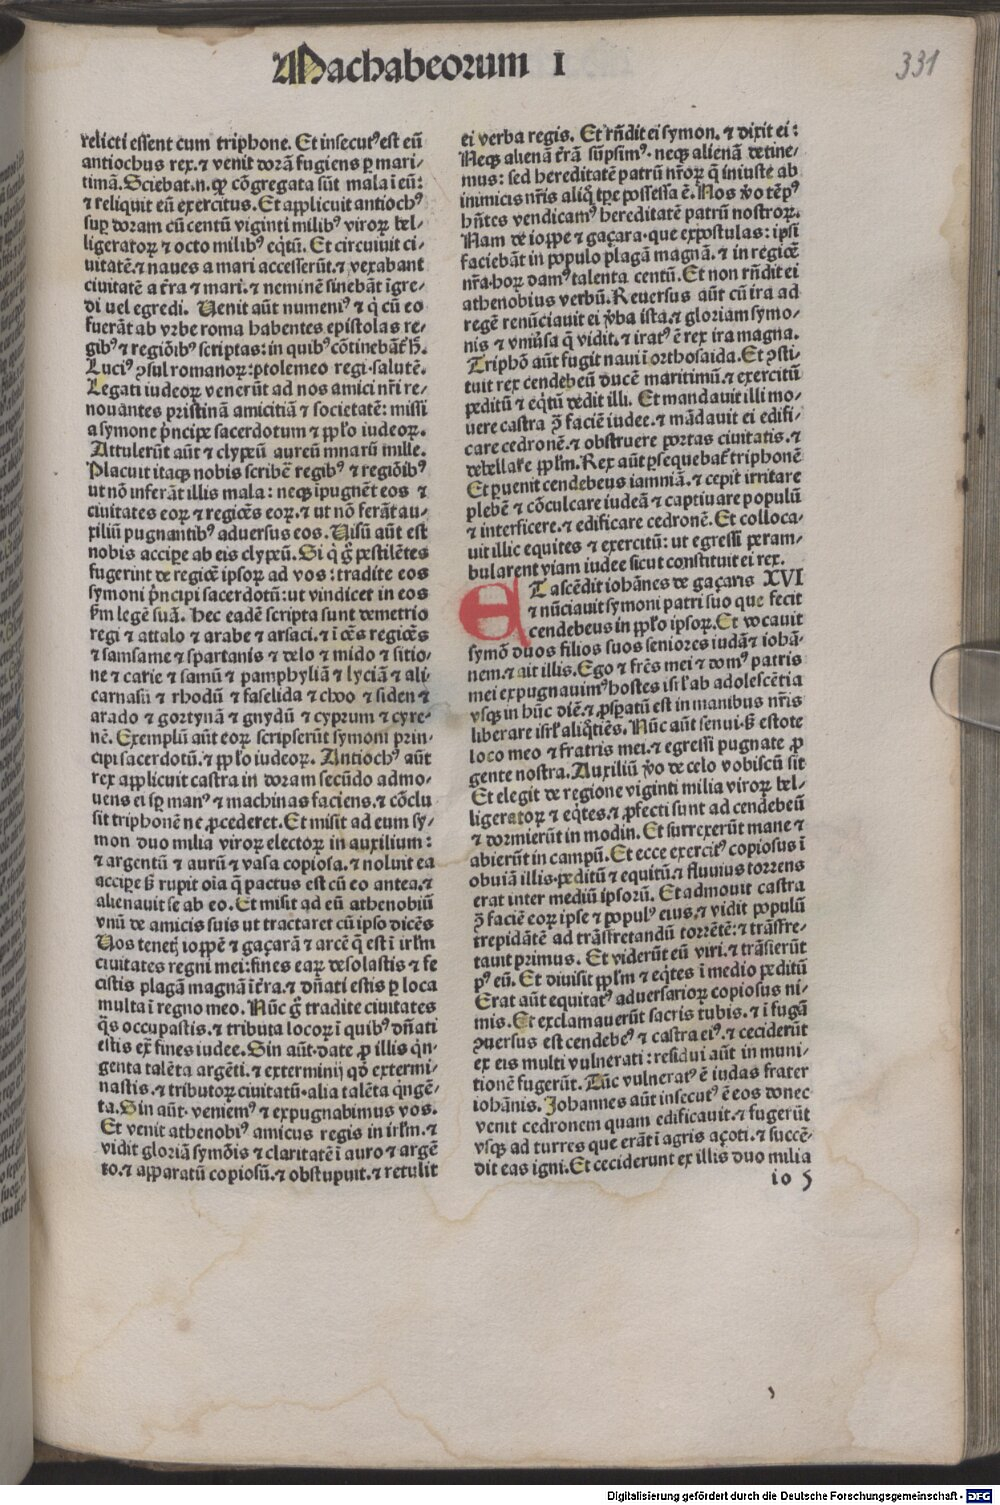 Machabeorum I
331
relicti essent cum triphone. Et insecutꝰ est eū
antiochus rex. ⁊ venit dorā fugiens ꝑ mari-
timā. Sciebat .n. ꝙ cōgregata sūt mala ī eū:
⁊ reliquit eū exercitus. Et applicuit antiochꝰ
suꝑ doram cū centū viginti milibꝰ viroꝝ bel-
ligeratoꝝ ⁊ octo milibꝰ eq̄tū. Et circuiuit ci-
uitatē. ⁊ naues a mari accesserūt. ⁊ vexabant
ciuitatē a t̄ra ⁊ mari. ⁊ neminē sinebāt īgre-
di uel egredi. Uenit aūt numeniꝰ ⁊ q̇ cū eo
fuerāt ab vrbe roma habentes epistolas re-
gibꝰ ⁊ regiōibꝰ scriptas: in quibꝰ cōtinebāt̄ h̄.
Luciꝰ ꝯsul romanoꝝ: ptolemeo regi salutē.
Legati iudeoꝝ venerūt ad nos amici nr̄i re-
nouantes pristinā amicitiā ⁊ societatē: missi
a symone pͥncipe sacerdotum ⁊ ppl̄o iudeoꝝ.
Attulerūt aūt ⁊ clypeū aureū mnarū mille.
Placuit itaqꝫ nobis scribē regibꝰ ⁊ regiōibꝰ
ut nō inferāt illis mala: neqꝫ īpugnēt eos ⁊
ciuitates eoꝝ ⁊ regiōes eoꝝ. ⁊ ut nō ferāt au-
xiliū pugnantibꝰ aduersus eos. Uisū aūt est
nobis accipe ab eis clypeū. Si q̇ ġ pestilētes
fugerint de regiōe ipsoꝝ ad vos: tradite eos
symoni pͥncipi sacerdotū: ut vindicet in eos
ẜm legē suā. Hec eadē scripta sunt demetrio
regi ⁊ attalo ⁊ arabe ⁊ arsaci. ⁊ ī oēs regiōes
⁊ samsame ⁊ spartanis ⁊ delo ⁊ mido ⁊ sitio-
ne ⁊ carie ⁊ samū ⁊ pamphyliā ⁊ lyciā ⁊ ali
carnasū ⁊ rhodū ⁊ faselida ⁊ choo ⁊ siden ⁊
arado ⁊ gortynā ⁊ gnydū ⁊ cyprum ⁊ cyre-
nē. Exemplū aūt eoꝝ scripserūt symoni prin-
cipi sacerdotū. ⁊ ppl̄o iudeoꝝ. Antiochꝰ aūt
rex applicuit castra in doram secūdo admo-
uens ei sꝑ manꝰ ⁊ machinas faciens. ⁊ cōclu
sit triphonē ne ꝓcederet. Et misit ad eum sy-
mon duo milia viroꝝ electoꝝ in auxilium:
⁊ argentū ⁊ aurū ⁊ vasa copiosa. ⁊ noluit ea
accipe sꝫ rupit oīa q̄ pactus est cū eo antea. ⁊
alienauit se ab eo. Et misit ad eū athenobiū
vnū de amicis suis ut tractaret cū ipso dicēs
Uos tenetꝭ ioppē ⁊ gaçarā ⁊ arcē q̄ est ī irl̄m
ciuitates regni mei: fines eaꝝ desolastis ⁊ fe
cistis plagā magnā ī t̄ra. ⁊ dn̄ati estis ꝑ loca
multa ī regno meo. Nūc ġ tradite ciuitates
q̄s occupastis. ⁊ tributa locoꝝ ī quibꝰ dn̄ati
estis ex̄ fines iudee. Sin aūt. date ꝓ illis qͥn-
genta talēta argēti. ⁊ exterminij qḋ extermi-
nastis. ⁊ tributoꝝ ciuitatū. alia talēta qͥngē-
ta. Sin aūt. veniemꝰ ⁊ expugnabimus vos.
Et venit athenobiꝰ amicus regis in irl̄m. ⁊
vidit gloriā symōis ⁊ claritatē ī auro ⁊ argē
to. ⁊ apparatū copiosū. ⁊ obstupuit. ⁊ retulit
ei verba regis. Et rn̄dit ei symon. ⁊ dixit ei:
Neqꝫ alienā t̄rā sūpsimꝰ. neqꝫ alienā detine-
mus: sed hereditatē patrū nr̄oꝝ q̄ iniuste ab
inimicis nr̄is aliq̄ tꝑe possessa ē. Nos v̓o tēpꝰ
hn̄tes vendicamꝰ hereditatē patrū nostroꝝ.
Nam de ioppe ⁊ gaçara. que expostulas: ipsi
faciebāt in populo plagā magnā. ⁊ in regiōe
nr̄a. hoꝝ damꝰ talenta centū. Et non rn̄dit ei
athenobius verbū. Reuersus aūt cū ira ad
regē renūciauit ei v̓ba ista. ⁊ gloriam symo-
nis ⁊ vniu̓sa q̄ vidit. ⁊ iratꝰ ē rex ira magna.
Triphō aūt fugit naui ī orthosaida. Et ꝯsti-
tuit rex cendebeū ducē maritimū. ⁊ exercitū
peditū ⁊ eq̄tū dedit illi. Et mandauit illi mo-
uere castra ꝯ̄ faciē iudee. ⁊ mādauit ei edifi-
care cedronē. ⁊ obstruere portas ciuitatis. ⁊
debellare ppl̄m. Rex aūt ꝑsequebat̄ triphonē
Et ꝑuenit cendebeus iamniā. ⁊ cepit irritare
plebē ⁊ cōculcare iudeā ⁊ captiuare populū
⁊ interficere. ⁊ edificare cedronē. Et colloca-
uit illic equites ⁊ exercitū: ut egressi peram-
bularent viam iudee sicut constituit ei rex.
ET ascēdit iohānes de gaçaris XVI
⁊ nūciauit symoni patri suo que fecit
cendebeus in ppl̄o ipsoꝝ. Et vocauit
symō duos filios suos seniores iudā ⁊ iohā-
nem. ⁊ ait illis. Ego ⁊ fr̄es mei ⁊ domꝰ patris
mei expugnauimꝰ hostes isrl̄ ab adolescētia
vsqꝫ in hūc diē. ⁊ ꝓsꝑatū est in manibus nr̄is
liberare isrl̄ aliq̄tiēs. Nūc aūt senui. sꝫ estote
loco meo ⁊ fratris mei. ⁊ egressi pugnate ꝓ
gente nostra. Auxiliū v̓o de celo vobiscū sit
Et elegit de regione viginti milia viroꝝ bel-
ligeratoꝝ ⁊ eq̄tes. ⁊ ꝓfecti sunt ad cendebeū
⁊ dormierūt in modin. Et surrexerūt mane ⁊
abierūt in campū. Et ecce exercitꝰ copiosus ī
obuiā illis. peditū ⁊ equitū. ⁊ fluuius torrens
erat inter mediū ipsorū. Et admouit castra
ꝯ̄ faciē eoꝝ ipse ⁊ populꝰ eius. ⁊ vidit populū
trepidātē ad trāsfretandū torrētē: ⁊ trāsfre-
tauit primus. Et viderūt eū viri. ⁊ trāsierūt
pꝰ eū. Et diuisit ppl̄m ⁊ eq̄tes ī medio peditū
Erat aūt equitatꝰ aduersarioꝝ copiosus ni-
mis. Et exclamauerūt sacris tubis. ⁊ ī fugā
ꝯuersus est cendebeꝰ ⁊ castra eiꝰ. ⁊ ceciderūt
ex eis multi vulnerati: residui aūt in muni-
tionē fugerūt. Tūc vulneratꝰ ē iudas frater
iohānis. Johannes aūt insecutꝰ ē eos donec
venit cedronem quam edificauit. ⁊ fugerūt
vsqꝫ ad turres que erāt ī agris açoti. ⁊ succē-
dit eas igni. Et ceciderunt ex illis duo milia
io 5
Digitalisierung gefördert durch die Deutsche Forschungsgemeinschaft - DFG